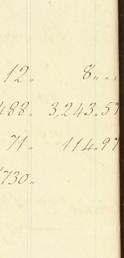 12„ 8„„
488„ 3,243.57
71„ 114.97
730„